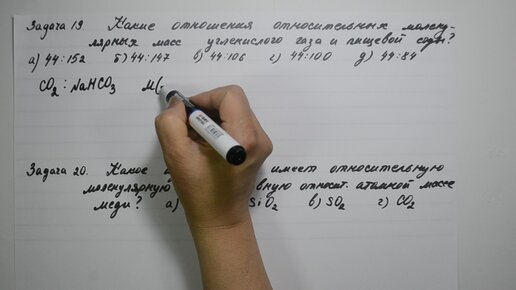 Задача 19. Какие отношения относительных молеку-
лярных масс углекислого газа и пищевой соды?
а) 44:152 б) 44:147 в) 44:106 г) 44:100 д) 44:84
CO₂ : NaHCO₃ М(
Задача 20. Какое имеет относительную
молекулярную вную относит. атомной массе
меди? а) SiO₂ в) SO₂ г) CO₂